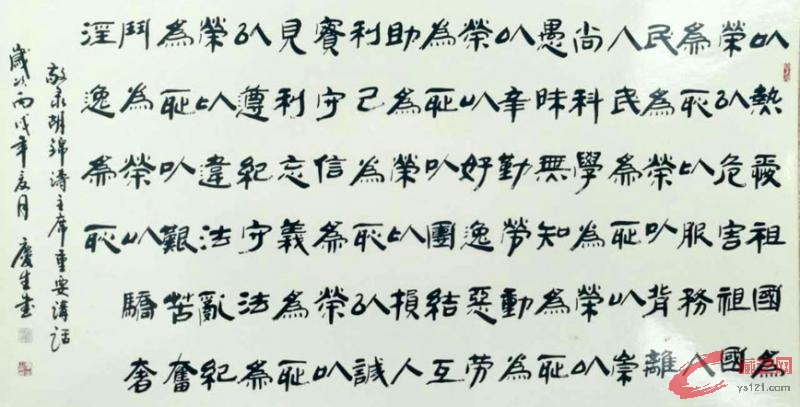 以熱愛祖國為
榮以危害祖國
為恥以服務人
民為榮以背離
人民為恥以崇
尚科學為榮以
愚昧無知為恥
以辛勤勞動為
榮以好逸惡勞
為恥以團結互
助為榮以損人
利己為恥以誠
實守信為榮以
見利忘義為恥
以遵紀守法為
榮以違法亂紀
為恥以艱苦奮
鬥為榮以驕奢
淫逸為恥
敬录胡錦濤主席重要講話
歲次丙戌年夏月 慶生書
ys121.com